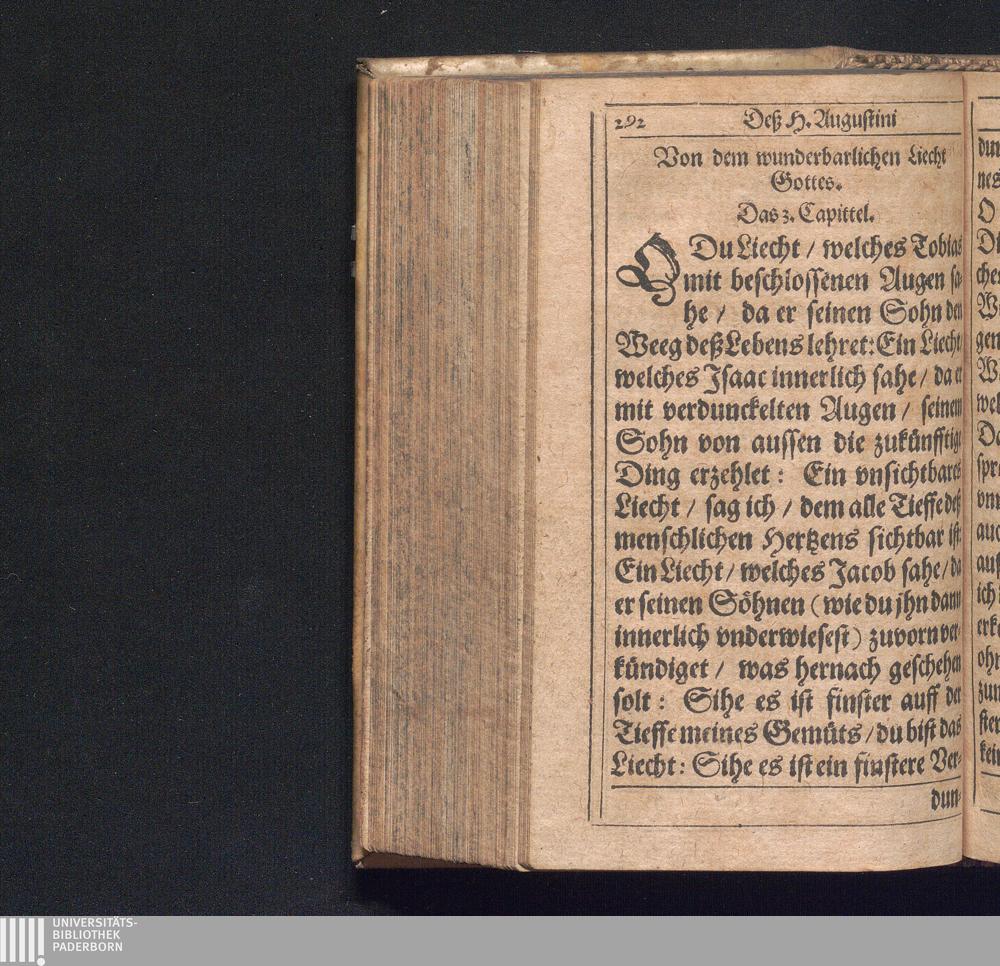 292 Deß H. Augustini
Von dem wunderbarlichen Liecht
Gottes.
Das 3. Capittel.
O Du Liecht / welches Tobias
mit beschlossenen Augen sa-
he / da er seinen Sohn den
Weeg deß Lebens lehret: Ein Liecht
welches Isaac innerlich sahe / da er
mit verdunckelten Augen / seinem
Sohn von aussen die zukünfftige
Ding erzehlet: Ein vnsichtbares
Liecht / sag ich / dem alle Tieffe deß
menschlichen Hertzens sichtbar ist:
Ein Liecht / welches Jacob sahe / da
er seinen Söhnen (wie du jhn dann
innerlich vnderwiesest) zuvorn ver-
kündiget / was hernach geschehen
solt: Sihe es ist finster auff der
Tieffe meines Gemüts / du bist das
Liecht: Sihe es ist ein finstere Ver-
dun-
UNIVERSITÄTS-
BIBLIOTHEK
PADERBORN